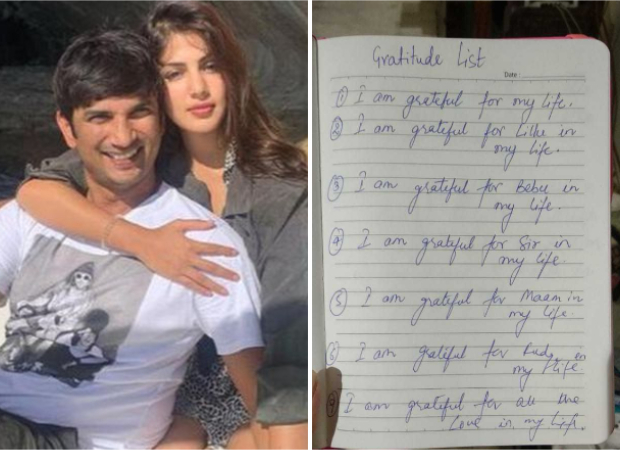 Gratitude List
Date :
① I am grateful for my life.
② I am grateful for Lillu in
my life.
③ I am grateful for Bebu in
my life.
④ I am grateful for Sir in
my life.
⑤ I am grateful for Maam in
my life.
⑥ I am grateful for in
my life
⑦ I am grateful for all the
Love in my life.